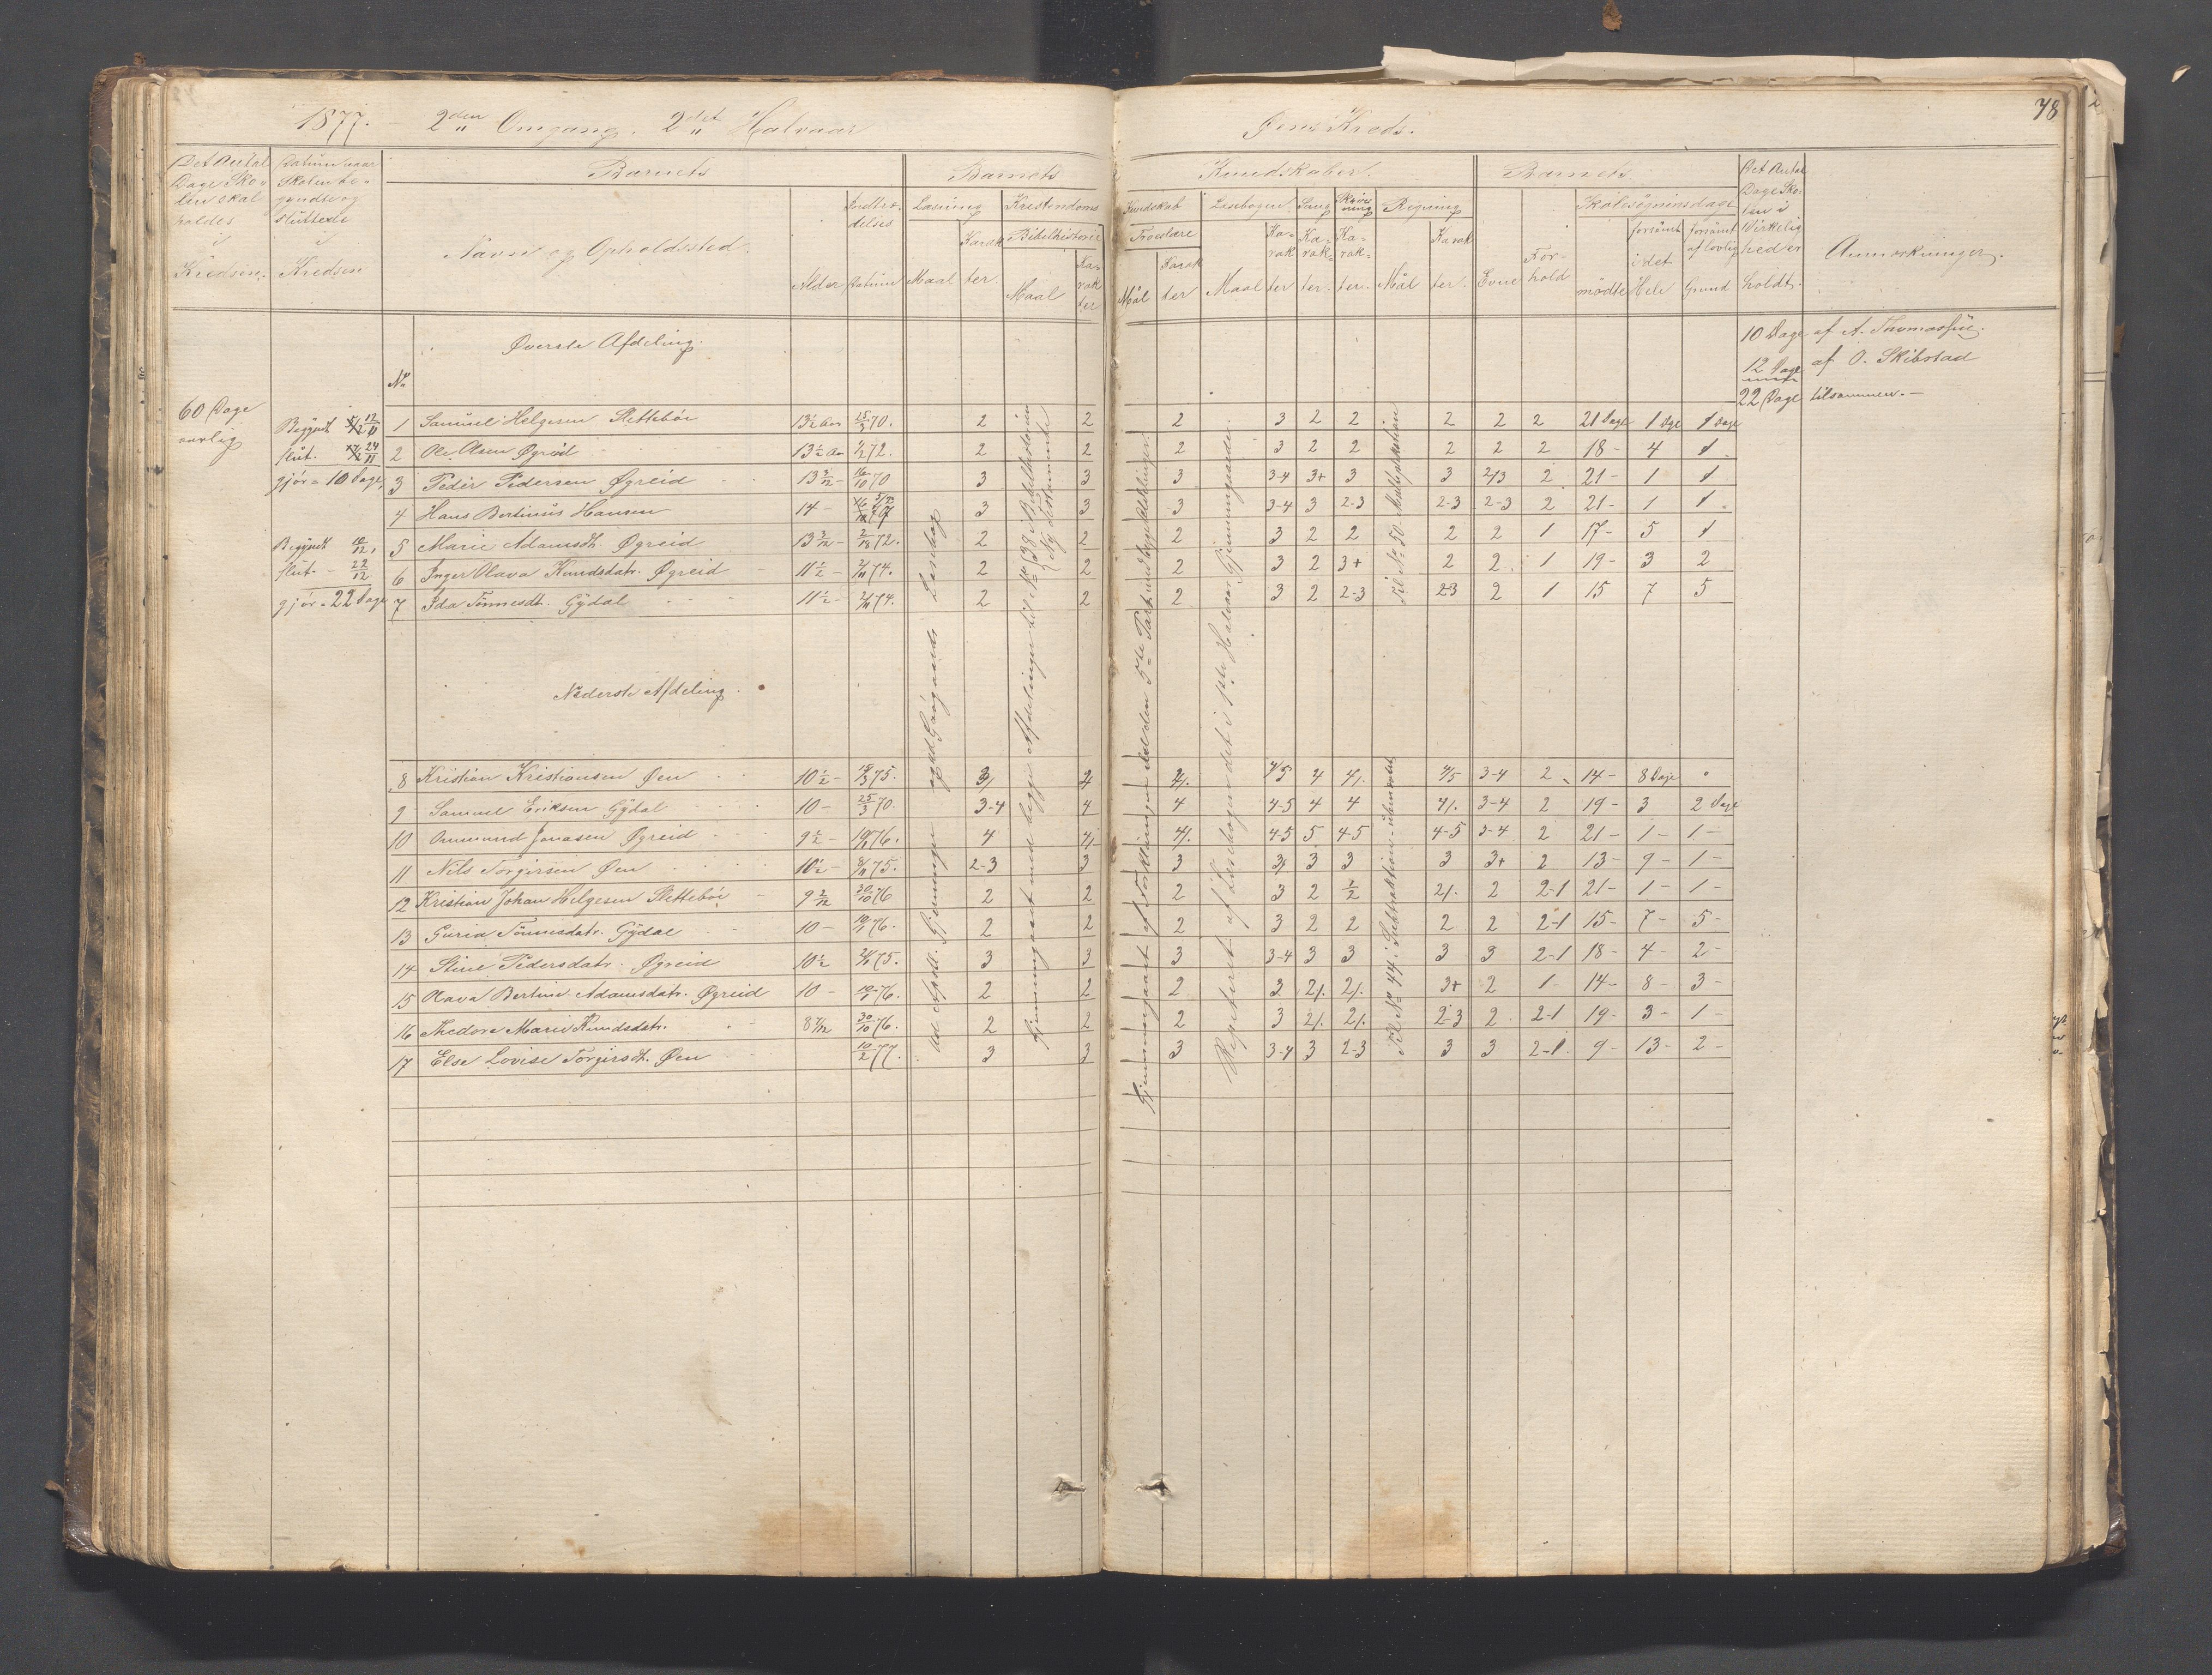 1877. - 2den Omgang. 2det Halvaar
78
Det Antal Dage Skolen skal holdes i Kredsen.
Datum naar Skolen begyndte og sluttede i Kredsen
Barnets
Navn og Opholdssted.
Alder
Indtrædelses Datum
Barnets
Læsning
Maal
Karakter.
Kristendoms
Bibelhistorie
Maal
Karakter
Kundskaber.
Kundskab
Troeslære
Mål
Karakter
Læsebogen.
Maal
Karakter
Sang
Karakter.
Skrivning
Karakter.
Regning
Mål
Karakter.
Barnets
Evne
Forhold
Skolesøgningsdage
mødte
forsømt i det Hele
forsømt af lovlig Grund
Det Antal Dage Skolen i Virkelighed er holdt.
Anmærkninger.
Øverste Afdeling.
10 Dage af A. Thomassen.
12 Dage af O. Skibstad
22 Dage tilsammen. -
No
60 Dage
Begyndt 12/11
slut. 24/11
gjør = 10 Dage,
Begyndt 10/12,
slut. - 22/12
gjør = 22 Dage
1 Samuel Helgesen Slettebøe 13½ Aar 25/3 70. 2 2 2 3 2 2 2 2 2 21 Dage 1 Dge 1 Dage
2 Ole Asen Øgreid 13½ Aar ½ 72. 2 2 2 3 2 2 2 2 2 18 - 4 1
3 Peder Pedersen Øgreid 13 3/12 - 16/10 70 3 3 3 3-4 3+ 3 3 2/3 2 21 - 1 1
4 Hans Bertinus Hansen 14 - 3 3 3 3-4 3 2-3 2-3 2-3 2 21 - 1 1
5 Marie Adamsdt. Øgreid 13 3/12 - 72. 2 2 2 3 2 2 2 2 1 17 - 5 1
6 Inger Olava Knudsdatr. Øgreid 11½ - 2/11 74. 2 2 2 3 2 3+ 2 2 1 19 - 3 2
7 Ida Tønnesdt. Gydal 11½ - 2/11 74. 2 2 2 3 2 2-3 2-3 2 1 15 7 5
Nederste Afdeling.
8 Kristian Kristiansen Øen 10½ - 18/3 75. 3/ 4 4/. 4/5 4 4/. 4/5 3-4 2 14 - 8 Dage
9 Samuel Eriksen Gydal 10 - 25/3 70. 3-4 4 4 4-5 4 4 4/. 3-4 2 19 - 3 2 Dage
10 Ommund Jonasen Øgreid 9½ - 19/1 76. 4 4/- 4/. 4-5 5 4-5 4-5 3-4 2 21 - 1 - 1 -
11 Nils Torgersen Øen 10½ - 8/11 75. 2-3 3 3 3/ 3 3 3 3+ 2 13 - 9 - 1 -
12 Kristian Johan Helgesen Slettebøe 9 2/12 30/10 76 2 2 2 3 2 ½ 2/. 2 2-1 21 - 1 - 1 -
13 Guria Tønnesdatr. Gydal 10 - 19/1 76. 2 2 2 3 2 2 2 2 2-1 15 - 7 - 5 -
14 Stine Pedersdatr. Øgreid 10½ 75. 3 3 3 3-4 3 3 3 3 2-1 18 - 4 - 2 -
15 Olava Bertine Adamsdatr. Øgreid 10 - 19/1 76. 2 2 2 3 2/. 2/. 3+ 2 1 - 14 - 8 - 3 -
16 Thedora Marie Knudsdatr. 8 7/12 30/10 76. 2 2 2 3 2/. 2/. 2-3 2 2-1 19 - 3 - 1 -
17 Else Lovise Torgersdt. Øen 10/2 77. 3 3 3 3-4 3 2-3 3 3 2-1. 9 - 13 - 2 -
Gjennemgaaet med begge Afdelinger til No 38 i Bibelhistorien
Ny Testamente
Gjennemgaaet af Forklaringen til den 5te Part med begge Afdelinger
Repeteret af Læsebogen det i 1ste Halvaar Gjennemgaaede.
Til No 44 i Subtraktion
Til No 50 Multiplikation